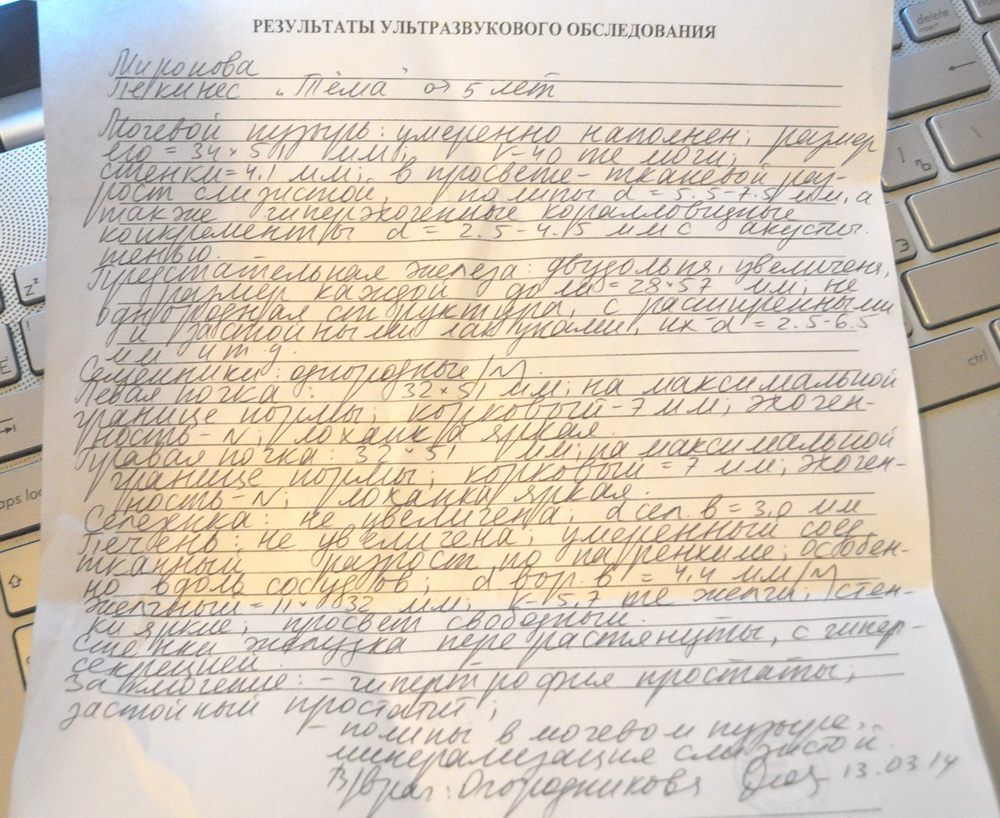 РЕЗУЛЬТАТЫ УЛЬТРАЗВУКОВОГО ОБСЛЕДОВАНИЯ
Миронова
Пекинес "Тёма" ♂ 5 лет
Мочевой пузырь: умеренно наполнен; размер
его = 34×51 мм; V-40 те мочи;
стенки=4.1 мм; в просвете- тканевой раз-
рост слизистой, полипы d = 5.5-7.5 мм, а
также гиперэхогенные коралловидные
конкременты d = 2.5-4.5 мм с акустич.
тенью.
Предстательная железа: двудольня, увеличена,
размер каждой доли=28×57 мм, не
однородная структура, с расширенными
и застойными лакунами, их d = 2.5-6.5
мм и т.д.
Семенники: однородные/N.
Левая почка: 32×51 мм; на максимальной
границе нормы; корковый-7 мм; эхоген-
ность-N; лоханка яркая.
Правая почка: 32×51 мм, на максимальной
границе нормы; корковый=7 мм; эхоген-
ность-N; лоханка яркая.
Селезёнка: не увеличена; d сел. в = 3,0 мм
Печень: не увеличена; умеренный соед.
тканный разрост по паренхиме, особен-
но вдоль сосудов; d вор. в = 4,4 мм/N
Желчный=11×32 мм; V-5,7 те желчи; стен-
ки яркие; просвет свободный.
Стенки желудка перерастянуты, с гипер-
секрецией.
Заключение: - гипертрофия простаты,
застойный простатит;
- полипы в мочевом пузыре,
минерализация слизистой.
В/врач: Огородникова 13.03.14
delete
ctrl
aps loc
Э
Ъ